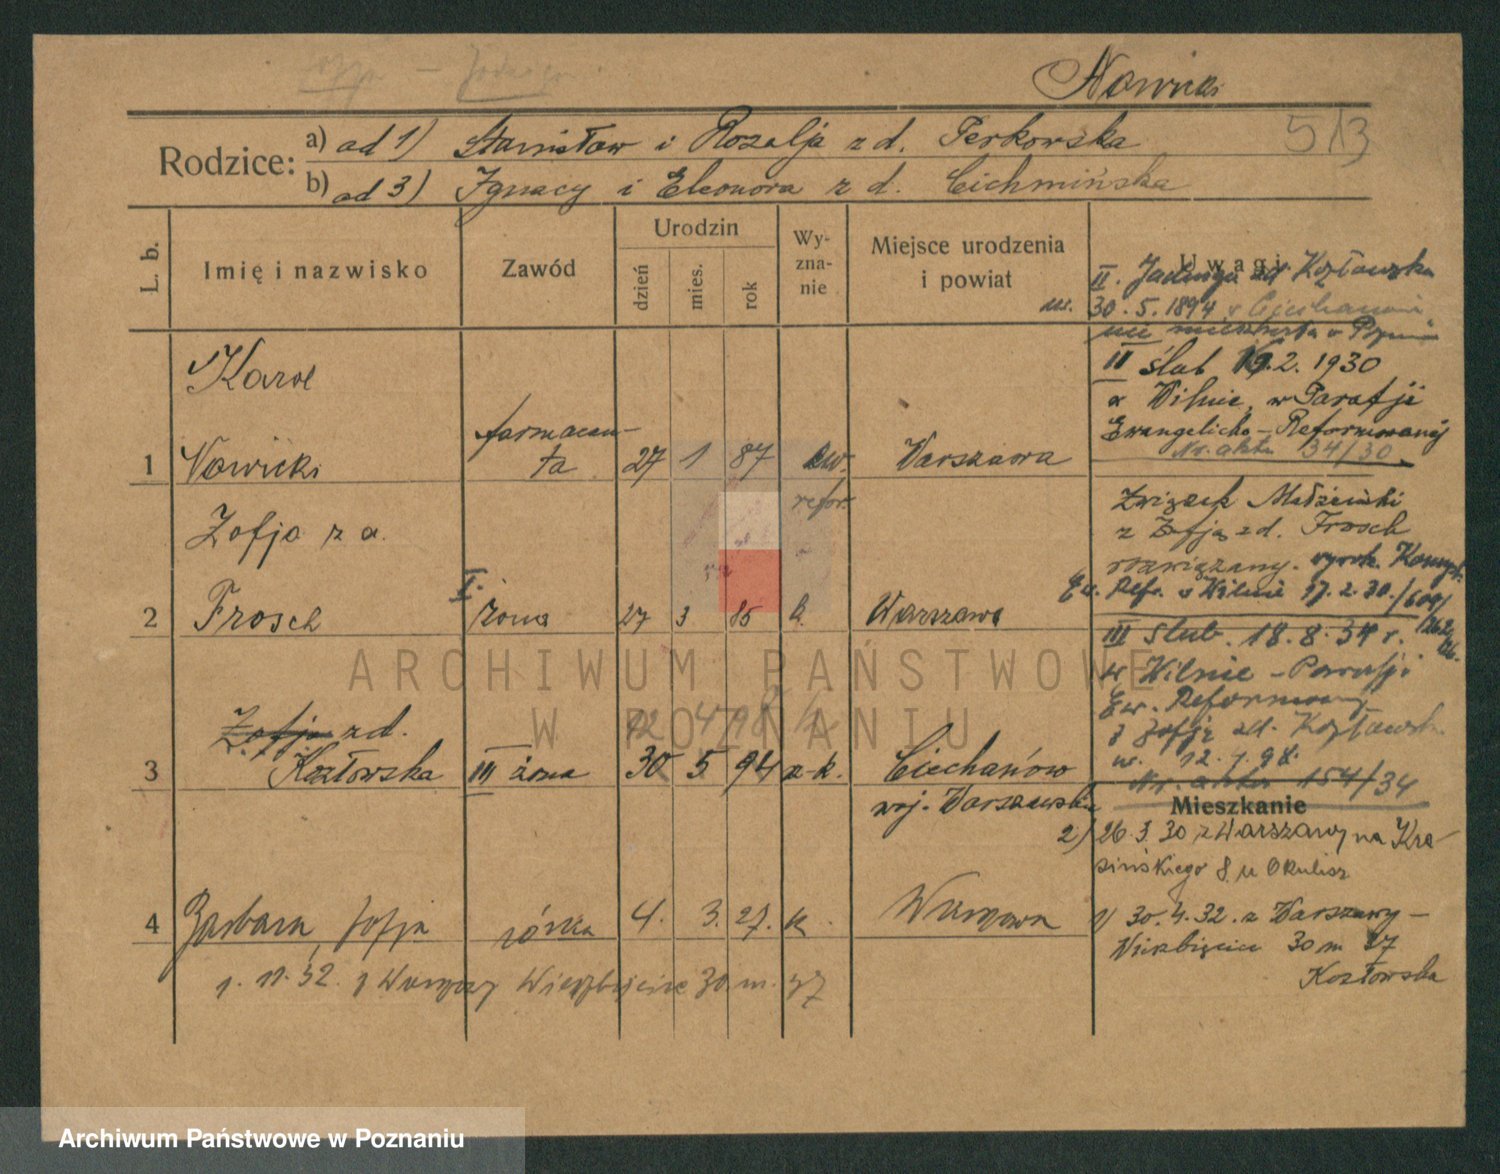 Nowicki
513
Rodzice: a) ad 1) Stanisław i Rozalja z d. Perkowska
b) ad 3) Ignacy i Eleonora z d. Cichmińska
L. b.
Imię i nazwisko
Zawód
Urodzin
dzień
mies.
rok
Wy-
zna-
nie
Miejsce urodzenia
i powiat
Uwagi
II. Jadwiga zd Kozłowska
ur. 30.5.1894 w Ciechanowie
nie mieszkała w
II ślub 19.2.1930
w Wilnie, w Parafji
Ewangelicko-Reformowanej
Nr. aktu 34/30
Karol
1 Nowicki
farmaceu-
ta
27 1 87
ew.
refor.
Warszawa
Związek Małżeński
z Zofją zd. Frosch
rozwiązany. wyrok. Konsyst.
Ew. Ref. w Wilnie 17.2.30./600/
Zofja z d.
2 Frosch
I.
żona
27 3 86
k.
Warszawa
III ślub. 18.8.34 r.
w Wilnie - Parafji
Ew. Reformowanej
z Zofją zd. Kozłowską
ur. 12.4.98.
Nr. aktu 154/34
12 4 98
Zofja zd.
3 Kozłowska
III żona
30 5 94
rz-k.
Ciechanów
woj. Warszawskie
Mieszkanie
2) 26.3.30 z Warszawy na Kra-
sińskiego 8 u Okulicz
4 Barbara, Zofja
córka
4. 3. 27.
k.
Warszawa
1) 30.4.32. z Warszawy -
Wierzbięcice 30 m 37
Kozłowska
1. 11. 32. z Warszawy Wierzbięcice 30 m. 37
ARCHIWUM PAŃSTWOWE
W POZNANIU
Archiwum Państwowe w Poznaniu